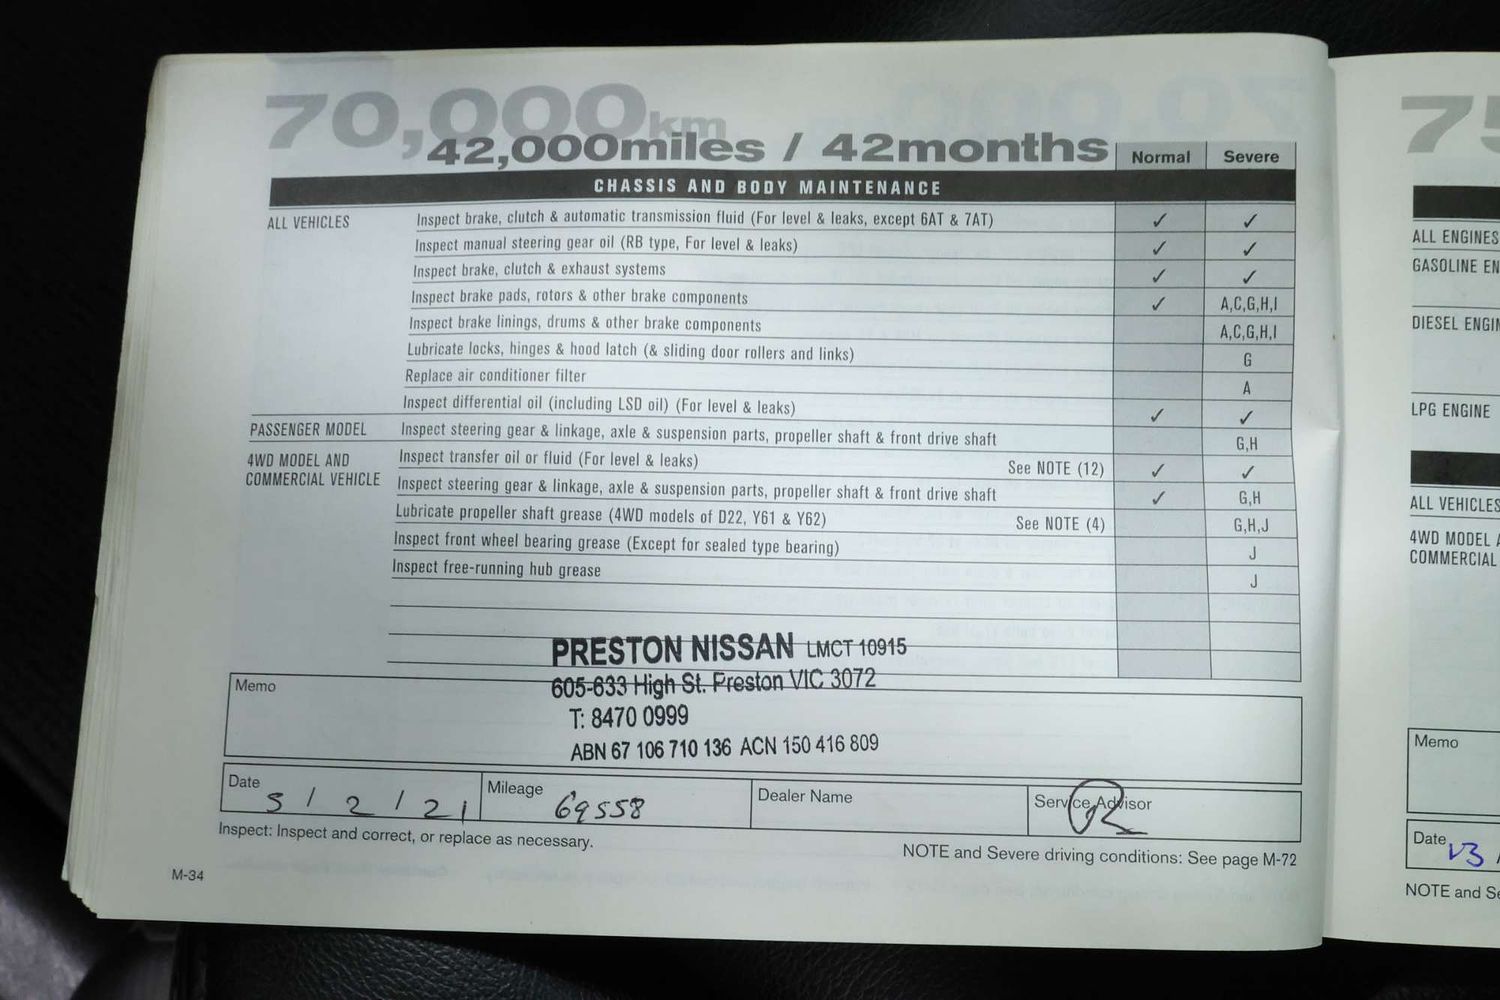 70,000km
42,000miles / 42months
Normal Severe
CHASSIS AND BODY MAINTENANCE
ALL VEHICLES Inspect brake, clutch & automatic transmission fluid (For level & leaks, except 6AT & 7AT) ✓ ✓
Inspect manual steering gear oil (RB type, For level & leaks) ✓ ✓
Inspect brake, clutch & exhaust systems ✓ ✓
Inspect brake pads, rotors & other brake components ✓ A,C,G,H,I
Inspect brake linings, drums & other brake components A,C,G,H,I
Lubricate locks, hinges & hood latch (& sliding door rollers and links) G
Replace air conditioner filter A
Inspect differential oil (including LSD oil) (For level & leaks) ✓ ✓
PASSENGER MODEL Inspect steering gear & linkage, axle & suspension parts, propeller shaft & front drive shaft G,H
4WD MODEL AND Inspect transfer oil or fluid (For level & leaks) See NOTE (12) ✓ ✓
COMMERCIAL VEHICLE Inspect steering gear & linkage, axle & suspension parts, propeller shaft & front drive shaft ✓ G,H
Lubricate propeller shaft grease (4WD models of D22, Y61 & Y62) See NOTE (4) G,H,J
Inspect front wheel bearing grease (Except for sealed type bearing) J
Inspect free-running hub grease J
PRESTON NISSAN LMCT 10915
605-633 High St. Preston VIC 3072
T: 8470 0999
ABN 67 106 710 136 ACN 150 416 809
Memo
Date 5/2/21 Mileage 69558 Dealer Name Service Advisor
Inspect: Inspect and correct, or replace as necessary.
NOTE and Severe driving conditions: See page M-72
M-34
75
ALL ENGINES
GASOLINE EN
DIESEL ENGIN
LPG ENGINE
ALL VEHICLES
4WD MODEL A
COMMERCIAL
Memo
Date
NOTE and Se